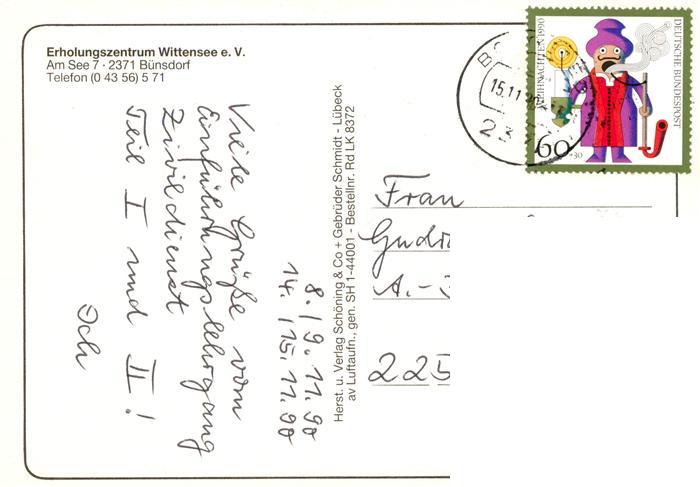 Erholungszentrum Wittensee e. V.
Am See 7 · 2371 Bünsdorf
Telefon (0 43 56) 5 71
8./9.11.90
14./15.11.90
Viele Grüße vom
Einführungslehrgang
Zivildienst
Teil I und II!
Ich
Herst. u. Verlag Schöning & Co + Gebrüder Schmidt - Lübeck
av Luftaufn., gen. SH 1-44001 - Bestellnr. Rd LK 8372
15.11.90
23
WEIHNACHTEN 1990
DEUTSCHE BUNDESPOST
60+30
Frau
Gudr
A.-
225